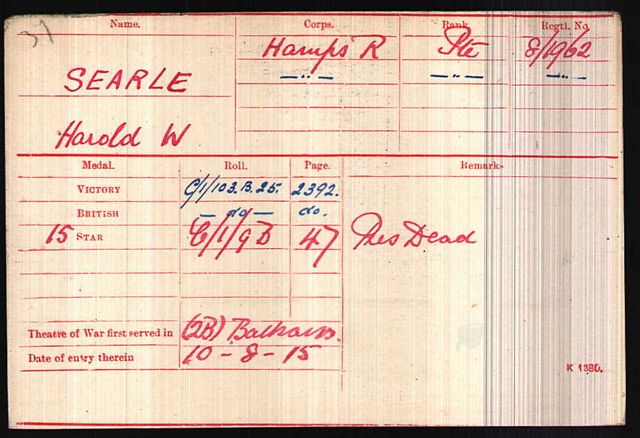 37
Name. Corps. Rank. Regtl. No.
SEARLE Hamps R Pte 8/1962
— " — — " — — " —
Harold W
Medal. Roll. Page. Remarks
VICTORY C/1/103.B.25. 2392.
BRITISH — do — do.
15 STAR C/1/9 B 47 Pres Dead
Theatre of War first served in (2B) Balkans.
Date of entry therein 10 - 8 - 15
K 1380.